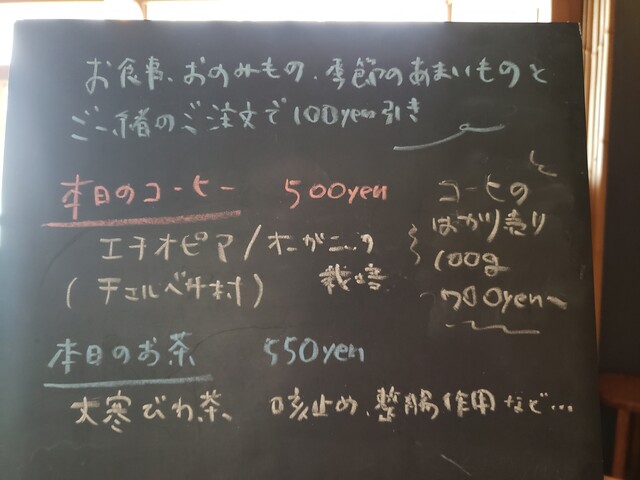 お食事、おのみもの、季節のあまいものと
ご一緒のご注文で100yen引き
本日のコーヒー 500yen
エチオピア/オーガニック
栽培
(チェルベサ村)
コーヒの
はかり売り
100g
700yen~
本日のお茶 550yen
大寒びわ茶 咳止め、整腸作用など...